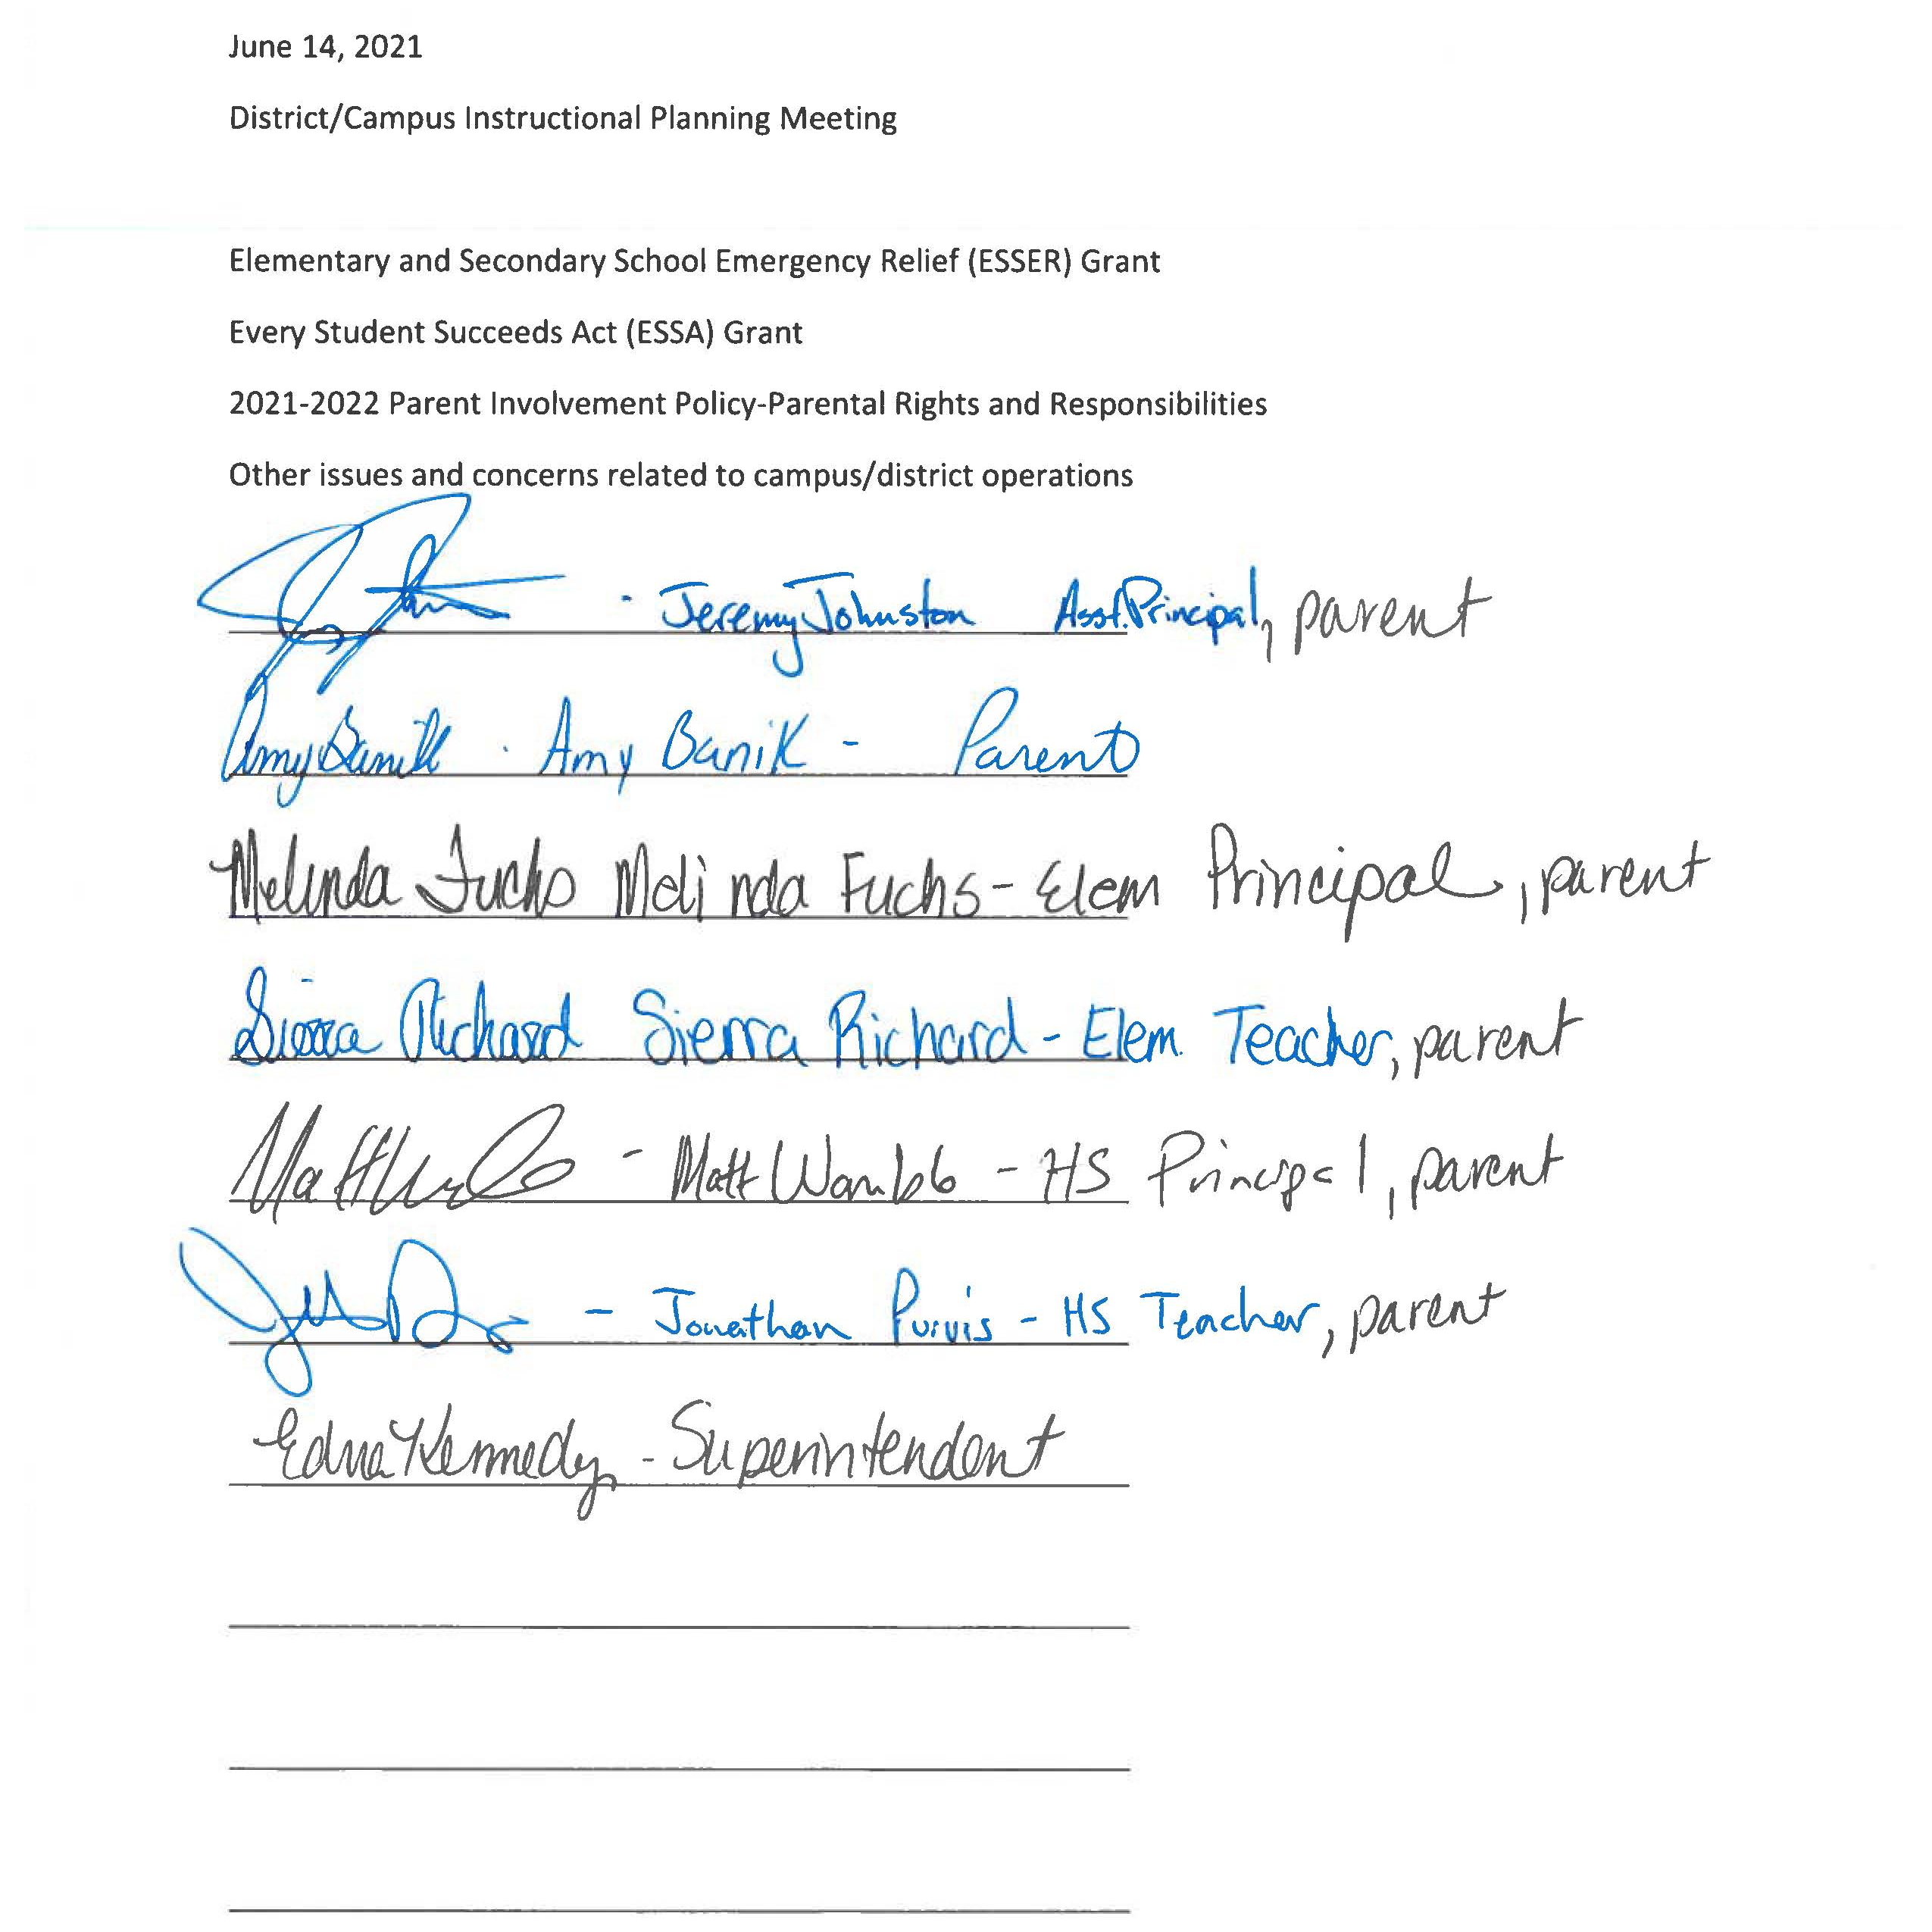 June 14, 2021
District/Campus Instructional Planning Meeting
Elementary and Secondary School Emergency Relief (ESSER) Grant
Every Student Succeeds Act (ESSA) Grant
2021-2022 Parent Involvement Policy-Parental Rights and Responsibilities
Other issues and concerns related to campus/district operations
- Jeremy Johnston Asst. Principal, parent
Amy Banik - Amy Banik - Parent
Melinda Fuchs Melinda Fuchs - Elem Principal, parent
Sierra Richard Sierra Richard - Elem. Teacher, parent
- Matt Wombb - HS Principal, parent
- Jonathan Purvis - HS Teacher, parent
Edna Kennedy - Superintendent